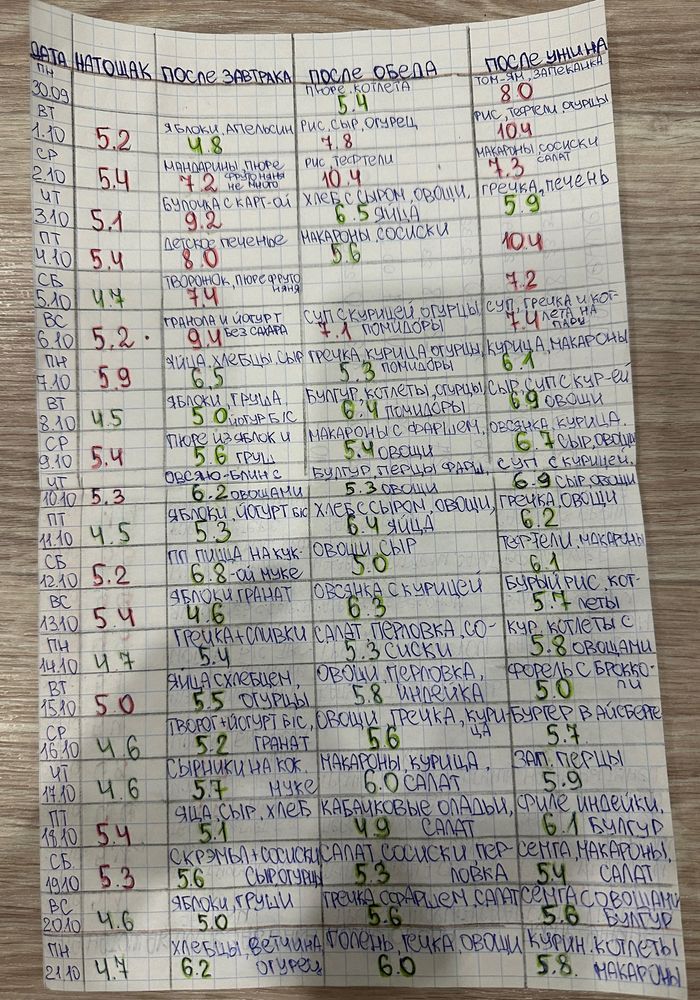 ДАТА НАТОЩАК ПОСЛЕ ЗАВТРАКА ПОСЛЕ ОБЕДА ПОСЛЕ УЖИНА
ПН ПЮРЕ, КОТЛЕТА ТОМ-ЯМ, ЗАПЕКАНКА
30.09 5.4 8.0
ВТ ЯБЛОКИ, АПЕЛЬСИН РИС, СЫР, ОГУРЕЦ РИС, ТЕФТЕЛИ, ОГУРЦЫ
1.10 5.2 4.8 7.8 10.4
СР МАНДАРИНЫ, ПЮРЕ РИС, ТЕФТЕЛИ МАКАРОНЫ, СОСИСКИ
2.10 5.4 7.2 ФРУТОНЯНЯ 10.4 7.3 САЛАТ
НЕ МНОГО
ЧТ БУЛОЧКА С КАРТ-ОЙ ХЛЕБ С СЫРОМ, ОВОЩИ, ГРЕЧКА, ПЕЧЕНЬ
3.10 5.1 9.2 6.5 ЯЙЦА 5.9
ПТ ДЕТСКОЕ ПЕЧЕНЬЕ МАКАРОНЫ, СОСИСКИ
4.10 5.4 8.0 5.6 10.4
СБ ТВОРОЖОК, ПЮРЕ ФРУТО
5.10 4.7 7.4 НЯНЯ 7.2
ВС ГРАНОЛА И ЙОГУРТ СУП С КУРИЦЕЙ, ОГУРЦЫ, СУП, ГРЕЧКА И КОТ-
6.10 5.2 9.4 БЕЗ САХАРА 7.1 ПОМИДОРЫ 7.4 ЛЕТА НА
ПАРУ
ПН ЯЙЦА, ХЛЕБЦЫ, СЫР ГРЕЧКА, КУРИЦА, ОГУРЦЫ, КУРИЦА, МАКАРОНЫ
7.10 5.9 6.5 5.3 ПОМИДОРЫ 6.1
ВТ ЯБЛОКИ, ГРУША, БУЛГУР, КОТЛЕТЫ, ОГУРЦЫ, СЫР, СУП С КУР-ЕЙ
8.10 4.5 5.0 ЙОГУРТ Б/С 6.4 ПОМИДОРЫ 6.9 ОВОЩИ
СР ПЮРЕ ИЗ ЯБЛОК И МАКАРОНЫ С ФАРШЕМ, ОВСЯНКА, КУРИЦА,
9.10 5.4 5.6 ГРУШ 5.4 ОВОЩИ 6.7 СЫР, ОВОЩИ
ЧТ ОВСЯНО-БЛИН С БУЛГУР, ПЕРЦЫ ФАРШ, СУП С КУРИЦЕЙ,
10.10 5.3 6.2 ОВОЩАМИ 5.3 ОВОЩИ 6.9 СЫР, ОВОЩИ
ПТ ЯБЛОКИ, ЙОГУРТ Б/С ХЛЕБ С СЫРОМ, ОВОЩИ, ГРЕЧКА, ОВОЩИ
11.10 4.5 5.3 6.4 ЯЙЦА 6.2
СБ ПП ПИЦЦА НА КУК- ОВОЩИ, СЫР ТЕФТЕЛИ, МАКАРОНЫ
12.10 5.2 6.8 -ОЙ МУКЕ 5.0 6.1
ВС ЯБЛОКИ, ГРАНАТ ОВСЯНКА С КУРИЦЕЙ БУРЫЙ РИС, КОТ-
13.10 5.4 4.6 6.3 5.7 ЛЕТЫ
ПН ГРЕЧКА+СЛИВКИ САЛАТ, ПЕРЛОВКА, СО- КУР. КОТЛЕТЫ С
14.10 4.7 5.4 5.3 СИСКИ 5.8 ОВОЩАМИ
ВТ ЯЙЦА С ХЛЕБЦЕМ, ОВОЩИ, ПЕРЛОВКА, ФОРЕЛЬ С БРОККО-
15.10 5.0 5.5 ОГУРЦЫ 5.8 ИНДЕЙКА 5.0 ЛИ
СР ТВОРОГ+ЙОГУРТ Б/С, ОВОЩИ, ГРЕЧКА, КУРИ- БУРГЕР В АЙСБЕРГЕ
16.10 4.6 5.2 ГРАНАТ 5.6 ЦА 5.7
ЧТ СЫРНИКИ НА КОК. МАКАРОНЫ, КУРИЦА, ЗАП. ПЕРЦЫ
17.10 4.6 5.7 МУКЕ 6.0 САЛАТ 5.9
ПТ ЯЦА, СЫР, ХЛЕБ КАБАЧКОВЫЕ ОЛАДЬИ, ФИЛЕ ИНДЕЙКИ,
18.10 5.4 5.1 4.9 САЛАТ 6.1 БУЛГУР
СБ СКРЭМБЛ+СОСИСКИ САЛАТ, СОСИСКИ, ПЕР- СЕМГА, МАКАРОНЫ,
19.10 5.3 5.6 СЫР, ОГУРЦЫ 5.3 ЛОВКА 5.4 САЛАТ
ВС ЯБЛОКИ, ГРУШИ ГРЕЧКА С ФАРШЕМ, САЛАТ СЕМГА С ОВОЩАМИ
20.10 4.6 5.0 5.6 5.6 БУЛГУР
ПН ХЛЕБЦЫ, ВЕТЧИНА ГОЛЕНЬ, ГЕЧКА, ОВОЩИ КУРИН. КОТЛЕТЫ
21.10 4.7 6.2 ОГУРЕЦ 6.0 5.8. МАКАРОНЫ